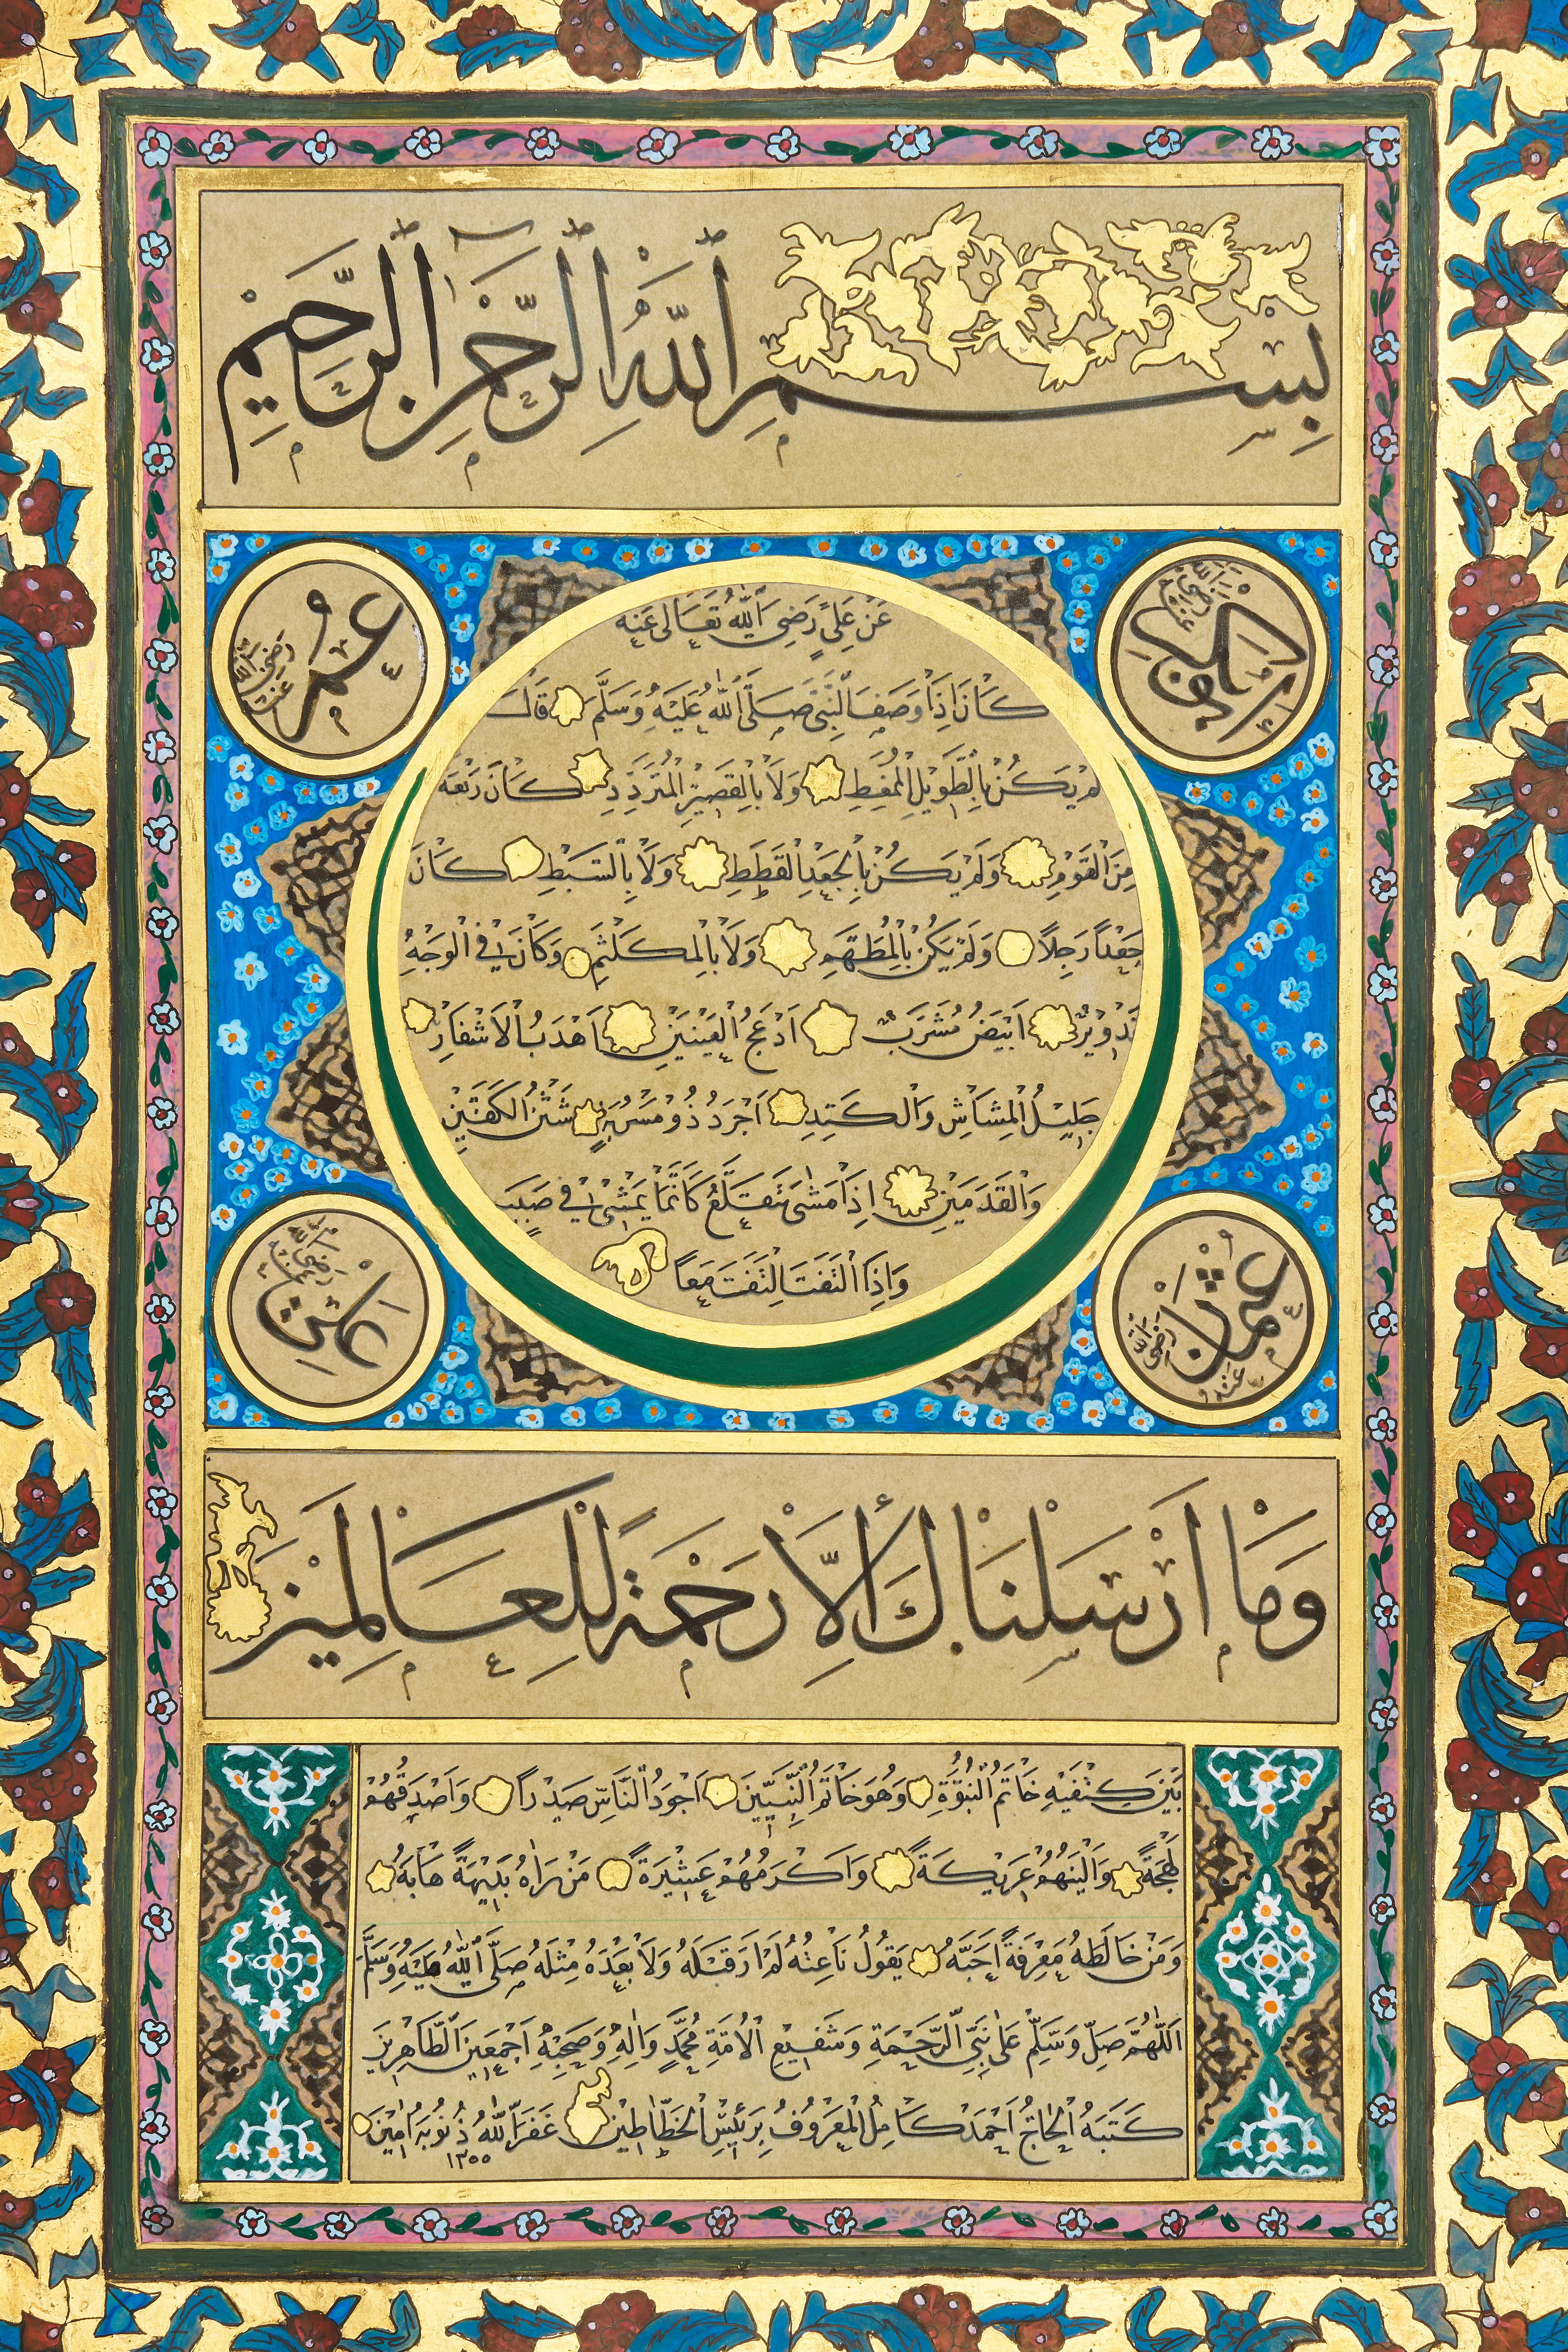 بِسْمِ اللّٰهِ الرَّحْمٰنِ الرَّحِيمِ
ابو بكر رضى الله عنه
عمر رضى الله عنه
عَنْ عَلِىٍّ رَضِىَ اللّٰهُ تَعَالٰى عَنْهُ
كَانَ اِذَا وَصَفَ النَّبِىَّ صَلَّى اللّٰهُ عَلَيْهِ وَسَلَّمَ قَالَ
لَمْ يَكُنْ بِالطَّوِيلِ الْمُمَّغِطِ وَلَا بِالْقَصِيرِ الْمُتَرَدِّدِ كَانَ رَبْعَةً
مِنَ الْقَوْمِ وَلَمْ يَكُنْ بِالْجَعْدِ الْقَطَطِ وَلَا بِالسَّبْطِ كَانَ
جَعْدًا رَجِلًا وَلَمْ يَكُنْ بِالْمُطَهَّمِ وَلَا بِالْمُكَلْثَمِ وَكَانَ فِى الْوَجْهِ
تَدْوِيرٌ اَبْيَضُ مُشْرَبٌ اَدْعَجُ الْعَيْنَيْنِ اَهْدَبُ الْاَشْفَارِ
جَلِيلُ الْمُشَاشِ وَالْكَتَدِ اَجْرَدُ ذُو مَسْرُبَةٍ شَثْنُ الْكَفَّيْنِ
وَالْقَدَمَيْنِ اِذَا مَشٰى تَقَلَّعَ كَاَنَّمَا يَمْشِى فِى صَبَبٍ
وَاِذَا الْتَفَتَ الْتَفَتَ مَعًا
عثمان رضى الله عنه
على رضى الله عنه
وَمَا اَرْسَلْنَاكَ اِلَّا رَحْمَةً لِلْعَالَمِينَ
بَيْنَ كَتِفَيْهِ خَاتَمُ النُّبُوَّةِ وَهُوَ خَاتَمُ النَّبِيِّينَ اَجْوَدُ النَّاسِ صَدْرًا وَاَصْدَقُهُمْ
لَهْجَةً وَاَلْيَنُهُمْ عَرِيكَةً وَاَكْرَمُهُمْ عَشِيرَةً مَنْ رَاٰهُ بَدِيهَةً هَابَهُ
وَمَنْ خَالَطَهُ مَعْرِفَةً اَحَبَّهُ يَقُولُ نَاعِتُهُ لَمْ اَرَ قَبْلَهُ وَلَا بَعْدَهُ مِثْلَهُ صَلَّى اللّٰهُ عَلَيْهِ وَسَلَّمَ
اَللّٰهُمَّ صَلِّ وَسَلِّمْ عَلٰى نَبِىِّ الرَّحْمَةِ وَشَفِيعِ الْاُمَّةِ مُحَمَّدٍ وَاٰلِهِ وَصَحْبِهِ اَجْمَعِينَ الطَّاهِرِينَ
كَتَبَهُ الْحَاجُّ اَحْمَدْ كَامِلُ الْمَعْرُوفُ بِرَئِيسِ الْخَطَّاطِينَ غَفَرَ اللّٰهُ ذُنُوبَهُ اٰمِينَ
١٣٥٥